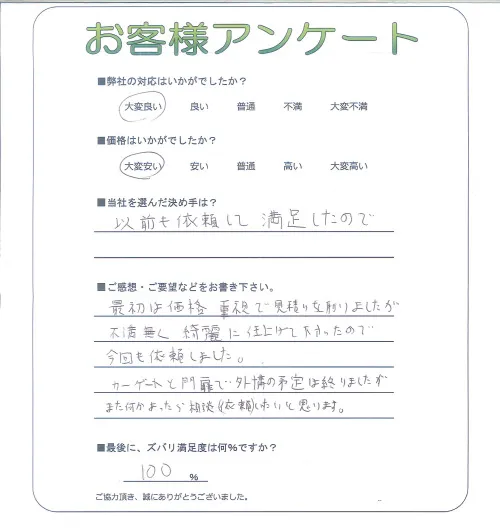 お客様アンケート
■弊社の対応はいかがでしたか？
大変良い 良い 普通 不満 大変不満
■価格はいかがでしたか？
大変安い 安い 普通 高い 大変高い
■当社を選んだ決め手は？
以前も依頼して 満足したので
■ご感想・ご要望などをお書き下さい。
最初は価格 重視で見積りを取りましたが
不満無く 綺麗に仕上げて下さったので
今回も依頼しました。
カーゲートと門扉で外構の予定は終りましたが
また何かあったら相談(依頼)したいと思います。
■最後に、ズバリ満足度は何%ですか？
100 %
ご協力頂き、誠にありがとうございました。